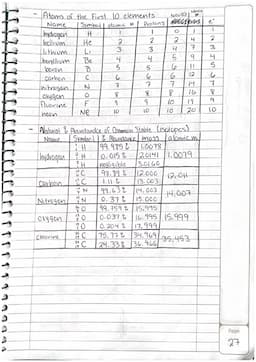 - Atoms of the First 10 elements
Name Symbol atomic # Protons e⁻
hydrogen H 1 1 0 1 1
helium He 2 2 2 4 2
lithium Li 3 3 4 7 3
beryllium Be 4 4 5 9 4
boron B 5 5 6 11 5
carbon C 6 6 6 12 6
nitrogen N 7 7 7 14 7
oxygen O 8 8 8 16 8
fluorine F 9 9 10 19 9
neon Ne 10 10 10 20 10
- Natural % Abundance of Stable (isotopes)
Name Symbol % Abundance mass atomic m
H 99.985 1.0078
hydrogen H 0.015 2.0141 1.0079
H negligible
C 12.000
Carbon C 1.11 13.003 12.011
N 99.63 14.003
Nitrogen N 0.37 15.000 14.007
O 99.759 15.995
oxygen O 0.037 16.995 15.999
O 0.204 17.999
C 75.77 34.969
Chlorine C 36.966 35.453
Page
27